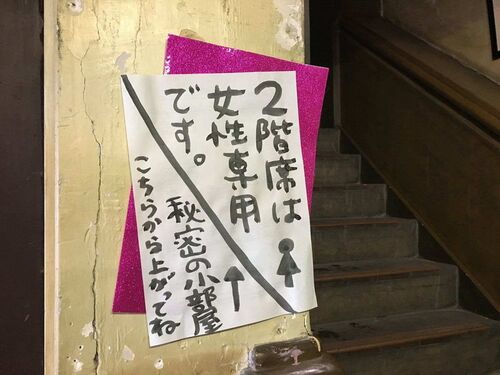 ２階席は
女性専用
です。
秘密の小部屋
こちらから上がってね